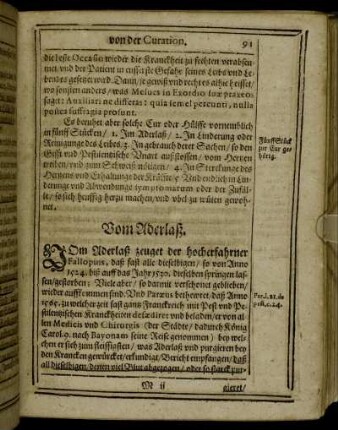 von der Curation. 91
die beste Occasion wieder die Kranckheit zu fechten verabsen-
met vnd der Patient in eusserste Gefahr seines Leibs vnd Le-
bens gesetzet ward. Dann je gewiß vnd rechtes alhie heisset/
wo sonsten anders/ was
sage: Auxiliari ne differas: quia semel pereunti, nulla
postea suffragia prosunt.
Es beruhet aber solche Cur oder Hülffe vornemblich
in fünff Stücken/ 1. Im Aderlaß/ 2. In Linderung oder
Reinigunge des Leibs. 3. In gebrauch derer Sachen/ so den
Gifft vnd Pestilentzische Vnart außstossen/ vom Hertzen
wenden/ vnd zum Schweiß nötigen/ 4. In Sterckunge des
Hertzens vnd Erhaltunge der Kräffte. 5. Vnd endlich in Lin-
derunge vnd Abwendunge symptomatum oder der Zufäl-
le/ so sich hefftig herzu machen/ vnd vbel zu wüten gewoh-
net.
Fünff Stück
zur Cur ge-
hörig.
Vom Aderlaß.
VOm Aderlaß zeuget der hocherfahrner
Fallopius, daß fast alle dieselbigen/ so von Anno
1524. biß auff das Jahr 1530. dieselben springen las-
sen/ gestorben: Viele aber/ so darmit verschonet geblieben/
wieder auffkommen sind. Vnd Paræus bezeuget, daß Anno
1565. zu welcher zeit fast gantz Franckreich mit Pest vnd Pe-
stilentzischen Kranckheiten behafftet vnd beladen/ er von al-
len Medicis vnd Chirurgis (der Städte/ dadurch König
Carol. 9. nach Bayonam seine Reise genommen) bey wel-
chen er sich zum fleissigsten/ was Aderlaß vnd purgieren bey
den Krancken gewürcket/ erkundiget/ Bericht empfangen/ daß
all dieselbigen/ denen viel Blut abgezogen/ oder so starck pur-
M ij
gieret/